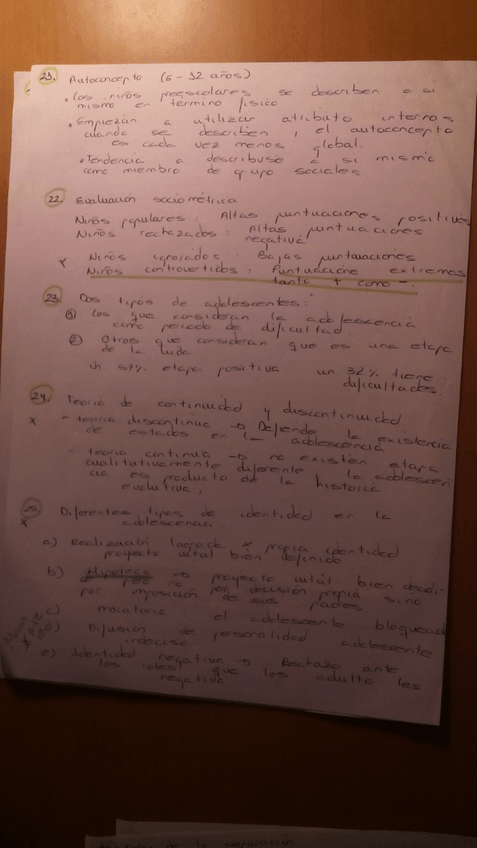 21. Autoconcepto (6-12 años)
• Los niños preescolares se describen a si
mismo en término físico
• Empiezan a utilizar atributo internos
cuando se describen, el autoconcepto
es cada vez menos global.
• Tendencia a describirse a si mismo
como miembro de grupo sociales
22. Evaluación sociométrica
Niños populares: Altas puntuaciones positivas
Niños rechazados: Altas puntuaciones
negativa
x Niños ignorados: Bajas puntuaciones
Niños controvertidos: Puntuacione extremas
tanto + como -.
23. Dos tipos de adolescentes:
① Los que consideran la adolescencia
como periodo de dificultad
② Otros que consideran que es una etapa
de la vida
un 57% etapa positiva un 32% tiene
dificultades.
24. Teoría de continuidad y discontinuidad
x - teoría discontinua → Defiende la existencia
de estados en la adolescencia
- teoría continua → no existen etapa
cualitativamente diferente la adolescen
cia es producto de la historia
evolutiva,
x Diferentes tipos de identidad en la
adolescencia
a) Realización logro de x propia identidad
proyecto vital bien definido
b) Hipoteca → proyecto vital bien
pero no por decisión propia sino
por imposición de sus padres
c) moratoria el adolescente bloqueado
Difusión de personalidad adolescente
indeciso
e) Identidad negativa → Rechazo ante
los roles que los adulta les
negativa.